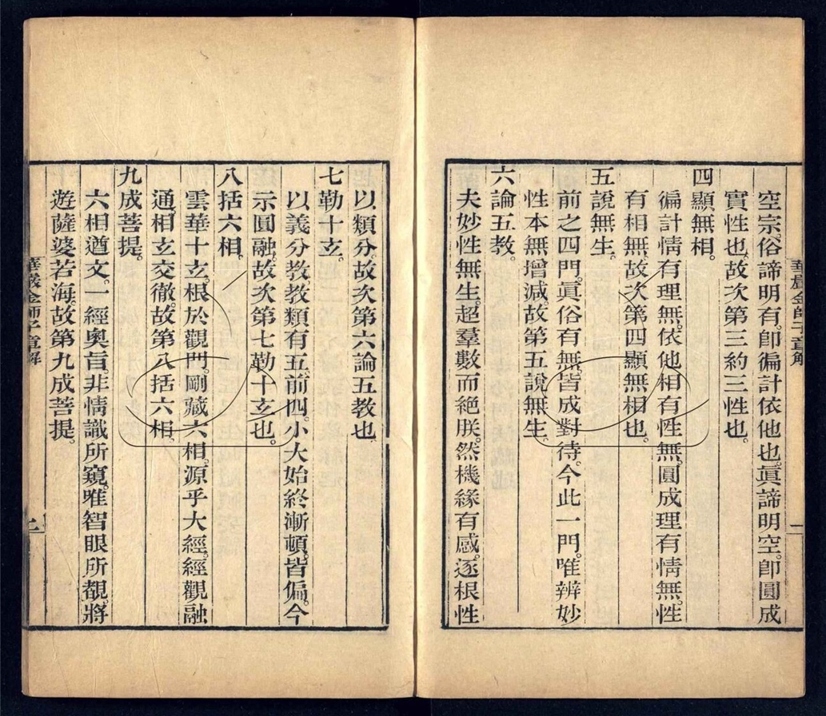 空宗俗諦明有。即徧計依他也。眞諦明空。即圓成
實性也。故次第三約三性也。
四顯無相。
徧計情有理無。依他相有性無。圓成理有情無。性
有相無。故次第四顯無相也。
五說無生。
前之四門。眞俗有無。皆成對待。今此一門。唯辨妙
性本無增減。故第五說無生。
六論五教。
夫妙性無生。超羣數而絕朕。然機緣有感。逐根性
華嚴金師子章解
以類分。故次第六論五教也
七勒十玄。
以義分教。教類有五。前四。小大始終漸頓。皆偏。今
示圓融。故次第七勒十玄也。
八括六相。
雲華十玄。根於觀門。剛藏六相。源乎大經。經觀融
通。相玄交徹。故第八括六相。
九成菩提。
六相遒文。一經奧旨。非情識所窺。唯智眼所覩。將
遊薩婆若海。故第九成菩提。
華嚴金師子章解
二